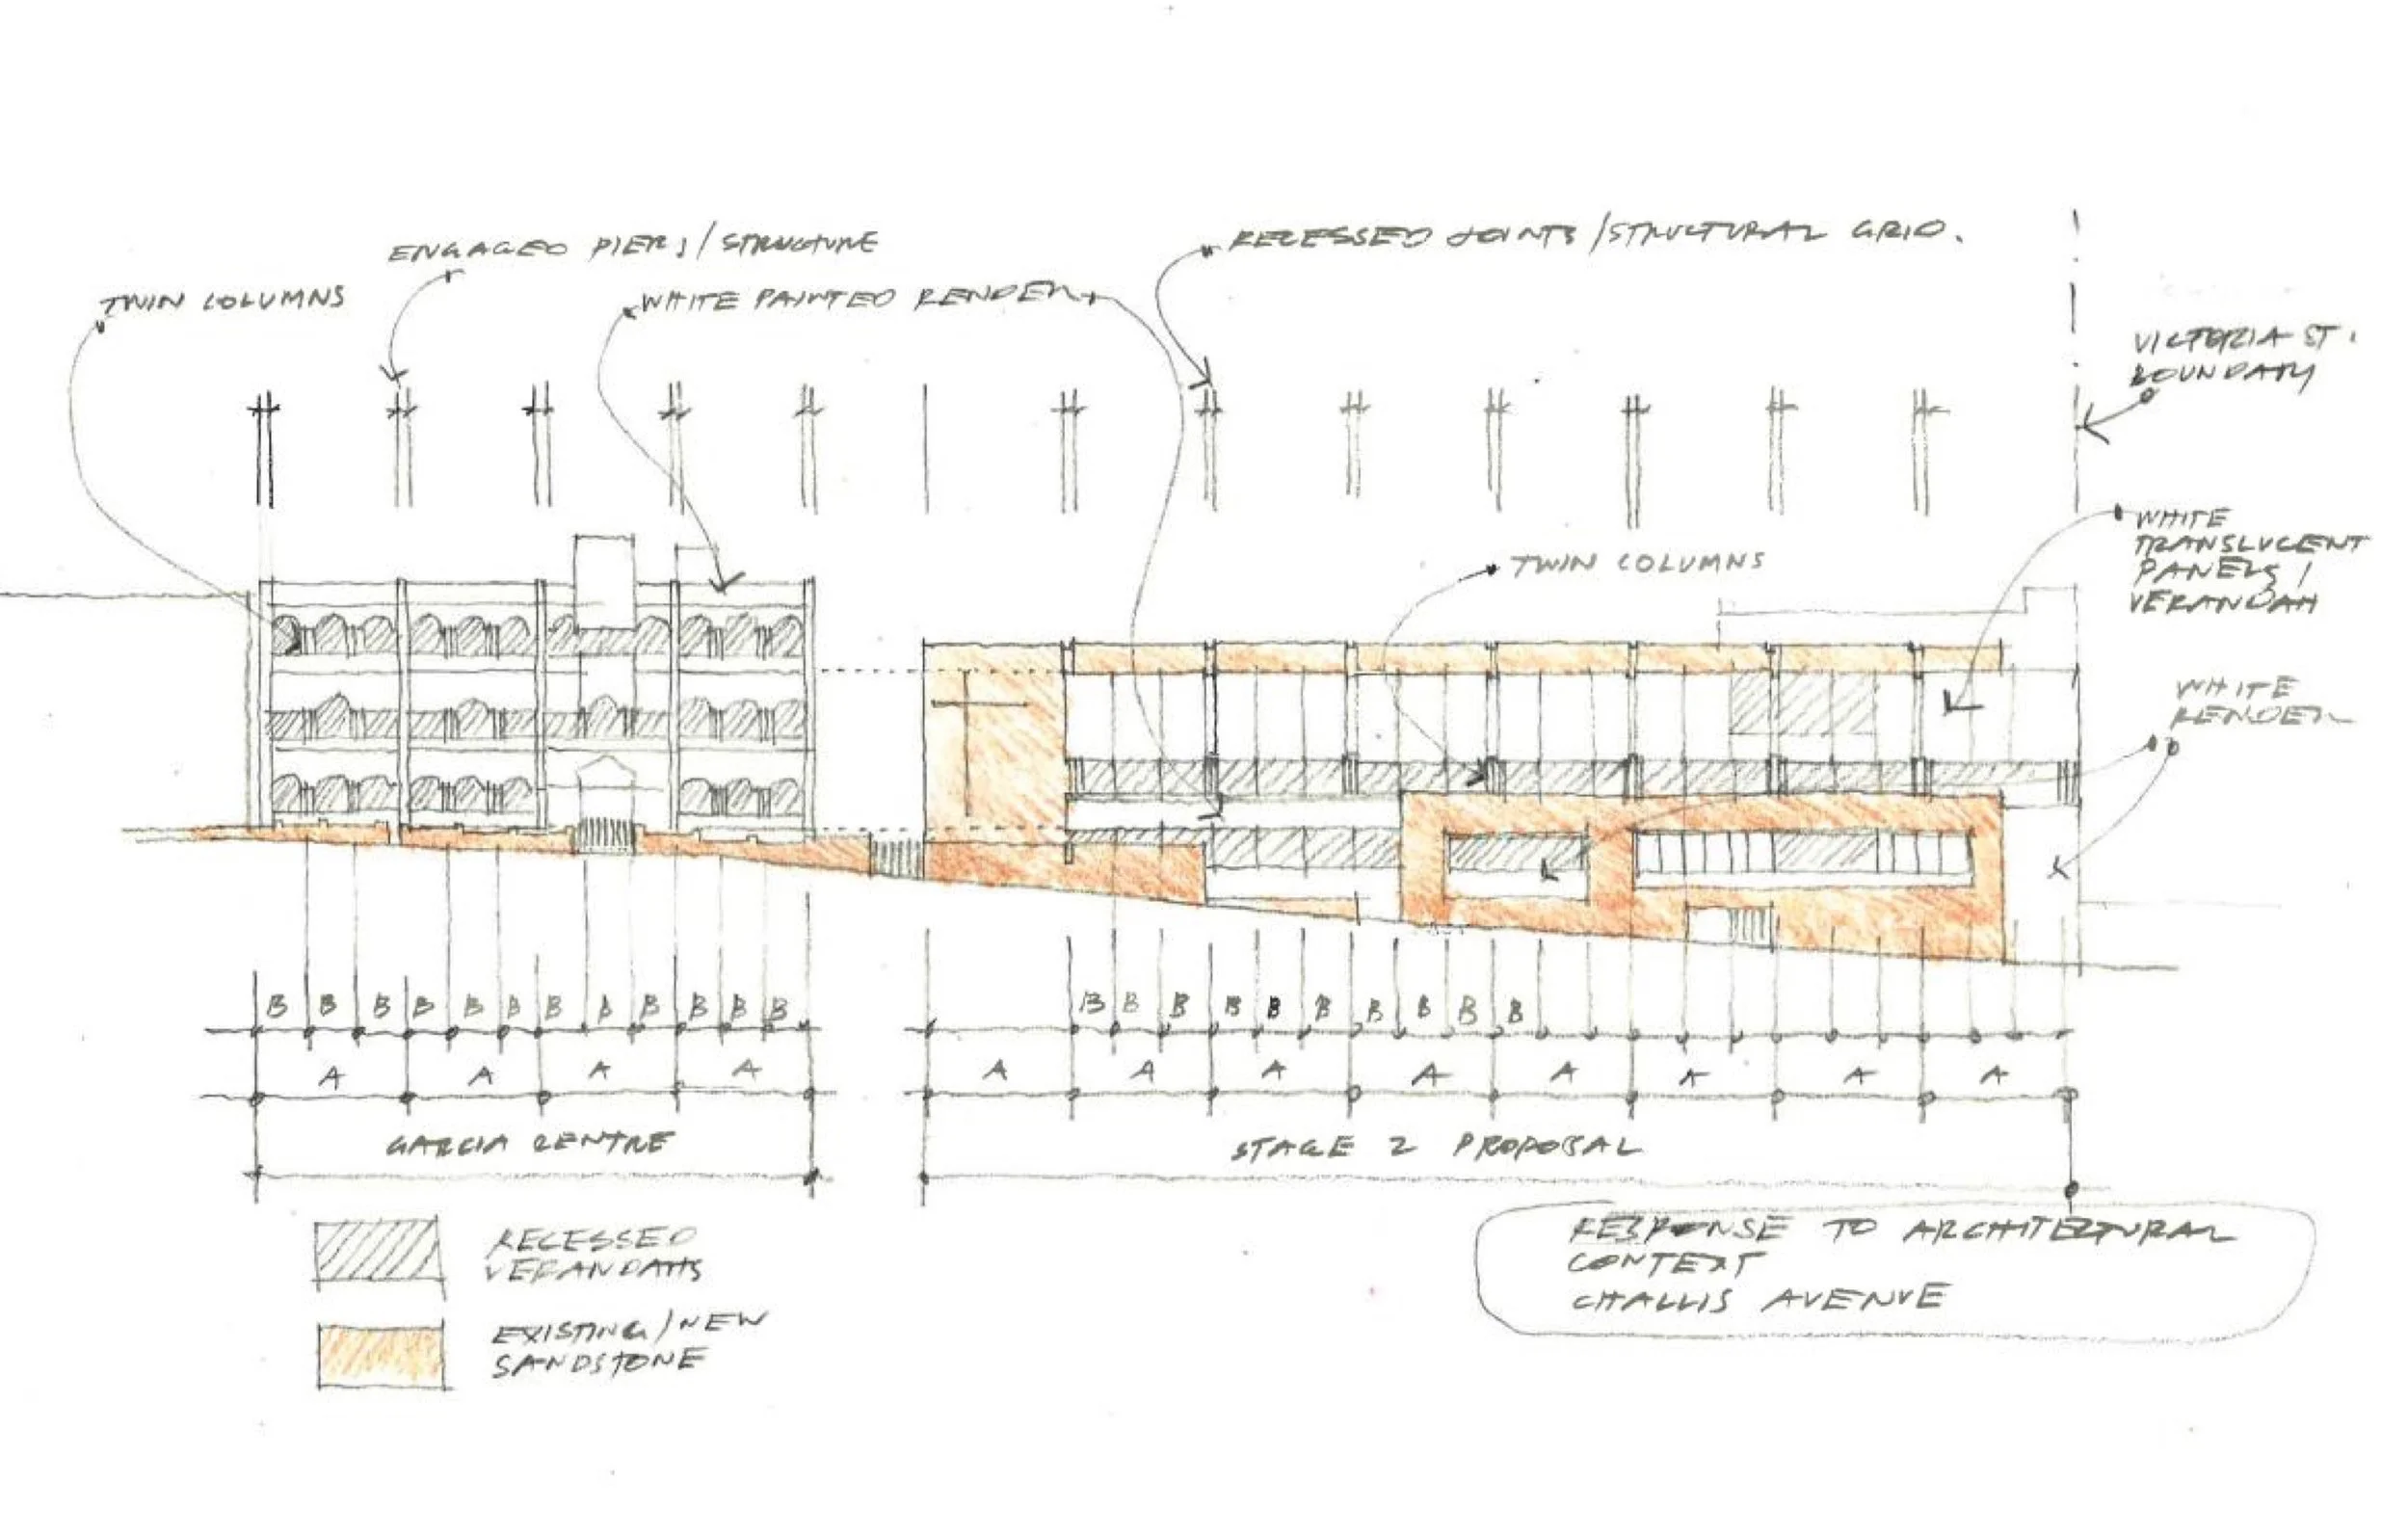 ENGAGED PIERS/STRUCTURE
RECESSED JOINTS/STRUCTURAL GRID.
TWIN COLUMNS
WHITE PAINTED RENDER
VICTORIA ST.
BOUNDARY
WHITE
TRANSLUCENT
PANELS/
VERANDAH
TWIN COLUMNS
WHITE
RENDER
B B B B B B B B B B B B
B B B B B B B B B B
A A A A
A A A A A A A A
GARCIA CENTRE
STAGE 2 PROPOSAL
RECESSED
VERANDAHS
EXISTING/NEW
SANDSTONE
RESPONSE TO ARCHITECTURAL
CONTEXT
CHALLIS AVENUE